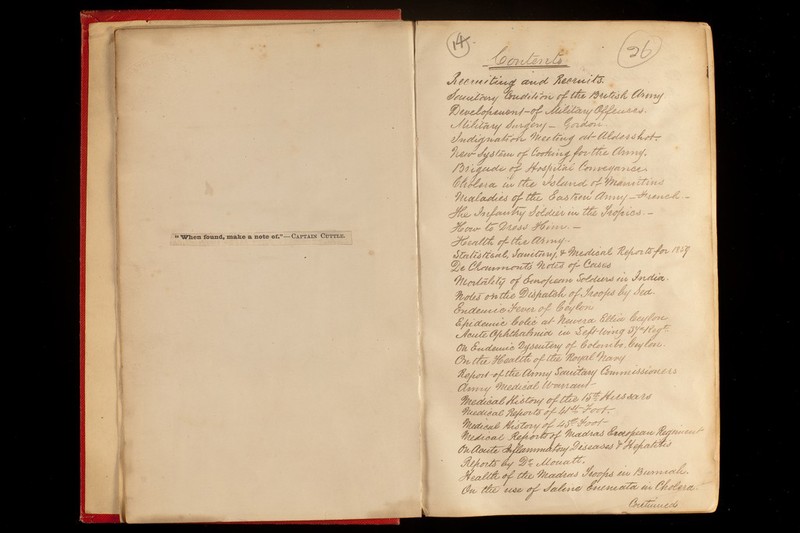 "When found, make a note of."—CAPTAIN CUTTLE.
14. 26
Contents
Recruiting and Recruits.
Sanitary Condition of the British Army
Development of Military Offences.
Military Surgery — Gordon
Indignation Meeting at Aldershot.
New System of Cooking for the Army.
Brigade of Hospital Conveyance.
Cholera in the Island of Mauritius
Maladies of the Eastern Army — French —
The Infantry Soldier in the Tropics. —
How to Dress Him. —
Health of the Army.
Statistical, Sanitary, & Medical Reports for 1859
De Chaumonts Notes of Cases
Mortality of European Soldiers in India.
Notes on the Dispatch of Troops by Sea.
Endemic Fever of Ceylon
Epidemic Colic at Newera Ellia Ceylon
Acute Ophthalmia in Left Wing 37th Regt.
On Endemic Dysentery of Colombo. Ceylon.
On the Health of the Royal Navy
Report of the Army Sanitary Commissioners
Army Medical Warrant
Medical History of the 15th Hussars
Medical Reports of Foot.
Medical History of Foot
Medical Reports of Madras European Regiment
On Acute Inflammatory Diseases & Hepatitis
Reports by Dr. Mouatt.
Health of the Madras Troops in Burmah.
On the use of Saline Enemata in Cholera.
Continued